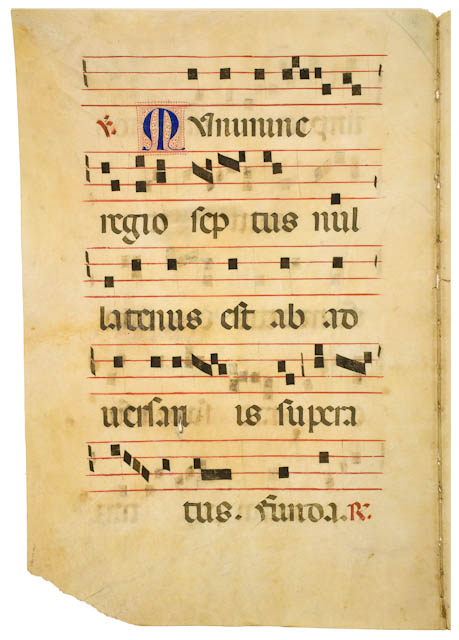 ℣. MVnimine
regio sep tus nul
latenus est ab ad
uersari is supera
tus. Funda. ℟.